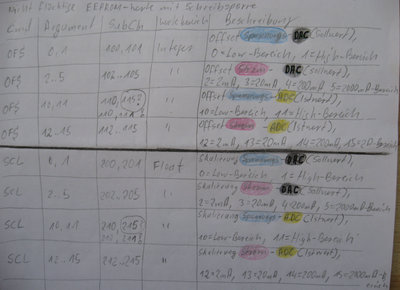 Nicht flüchtige EEPROM-Werte mit Schreibsperre
Cmd Argument SubCh Wertebereich Beschreibung
OFS 0,1 100,101 Integer Offset Spannungs-DAC (Sollwert),
0=Low-Bereich, 1=High-Bereich
OFS 2..5 102..105 " Offset Strom-DAC (Sollwert),
2=2mA, 3=20mA, 4=200mA, 5=2000mA-Bereich
OFS 10,11 110, 115? " Offset Spannungs-ADC (Istwert),
10=Low-Bereich, 11=High-Bereich
OFS 12..15 112..115 " Offset Strom-ADC (Istwert),
12=2mA, 13=20mA, 14=200mA, 15=
SCL 0,1 200,201 Float Skalierung Spannungs-DAC (Sollwert),
0=Low-Bereich, 1=High-Bereich
SCL 2..5 202..205 " Skalierung Strom-DAC (Sollwert),
2=2mA, 3=20mA, 4=200mA, 5=2000mA-Bereich
SCL 10,11 210, 215? " Skalierung Spannungs-ADC (Istwert),
10=Low-Bereich, 11=High-Bereich
SCL 12..15 212..215 " Skalierung Strom-ADC (Istwert),
12=2mA, 13=20mA, 14=200mA, 15=2000mA-B
ereich